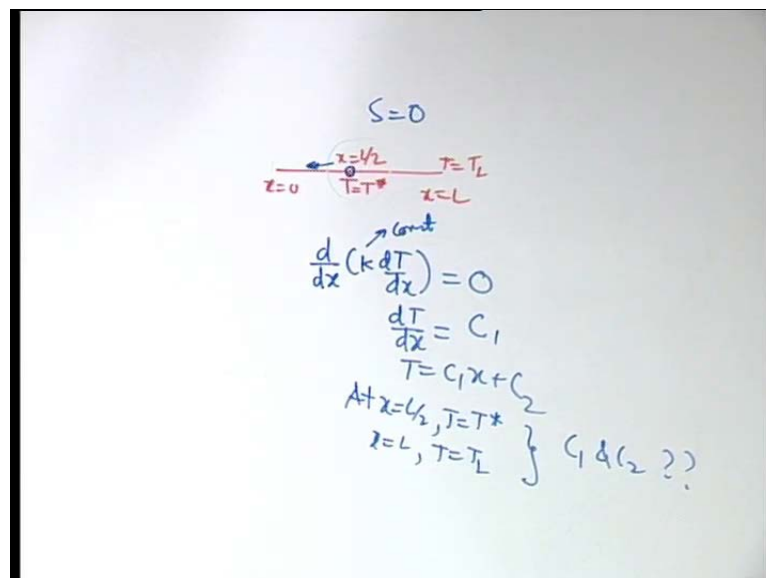 S=0
x=L/2 T=T_L
x=0 T=T* x=L
→ const
d/dx (k dT/dx) = 0
dT/dx = C_1
T=C_1x+C_2
At x=L/2, T=T*
x=L, T=T_L } C_1 & C_2 ??